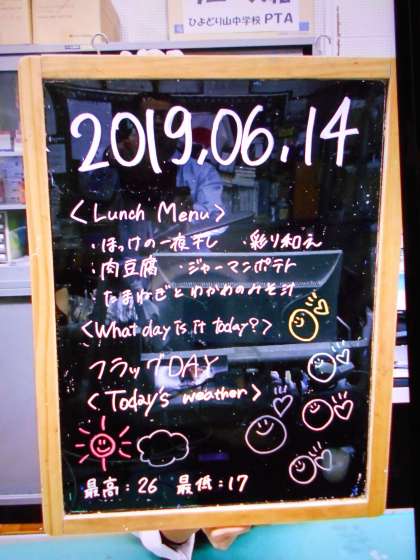 ひよどり山中学校 PTA
2019.06.14
<Lunch Menu>
・ほっけの一夜干し ・彩り和え
・肉豆腐 ・ジャーマンポテト
・たまねぎとわかめのみそ汁
<What day is it today?>
フラッグDAY
<Today's weather>
最高:26 最低:17